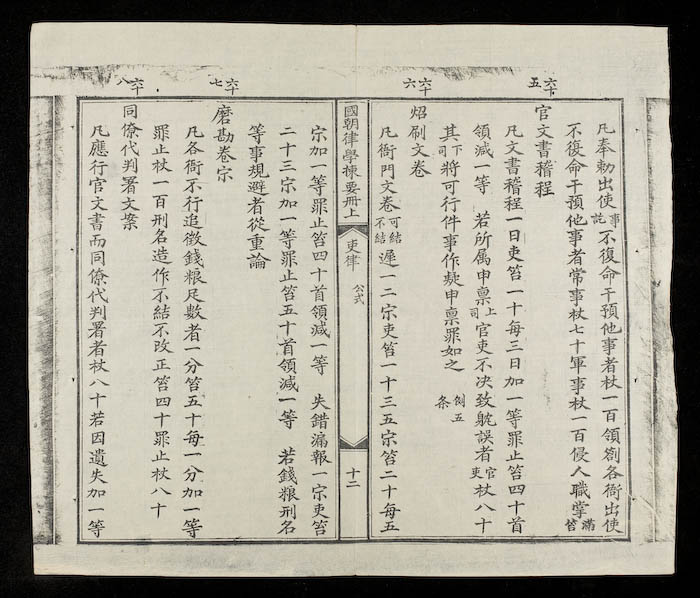 六十五
凡奉勅出使事訖不復命干預他事者杖一百領劄各衙出使
不復命干預他事者常事杖七十軍事杖一百侵人職掌滿笞
官文書稽程
凡文書稽程一日吏笞一十每三日加一等罪止笞四十首
領減一等 若所属申禀上司官吏不决致躭誤者官吏杖八十
其下司將可行件事作疑申禀罪如之 例五条
六十六
炤刷文卷
凡衙門文卷可結不結遲一二宗吏笞一十三五宗笞二十每五
國朝律學揀要冊上 吏律 公式 十二
宗加一等罪止笞四十首領減一等 失錯漏報一宗吏笞
二十三宗加一等罪止笞五十首領減一等 若錢粮刑名
等事規避者從重論
六十七
磨勘卷宗
凡各衙不行追徵錢粮足数者一分笞五十每一分加一等
罪止杖一百刑名造作不結不改正笞四十罪止杖八十
六十八
同僚代判署文案
凡應行官文書而同僚代判署者杖八十若因遺失加一等